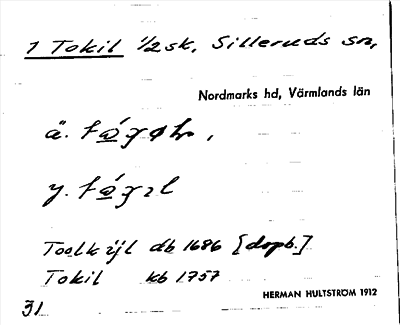 1 Tokil 1/2 sk, Silleruds sn,
Nordmarks hd, Värmlands län
ä.
y.
Toelkijl db 1686 [dopb.]
Tokil kb 1757
HERMAN HULTSTRÖM 1912
31